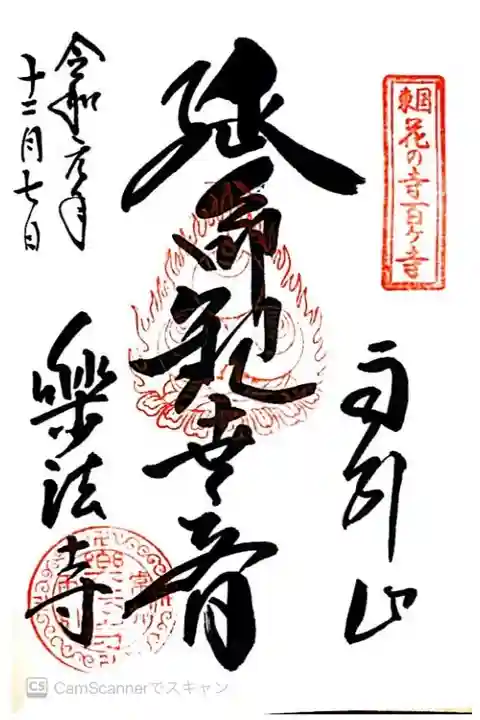 東国
花の寺百ヶ寺
雨引山
延命観世音
樂法寺
令和元年
十二月七日
CS CamScannerでスキャン